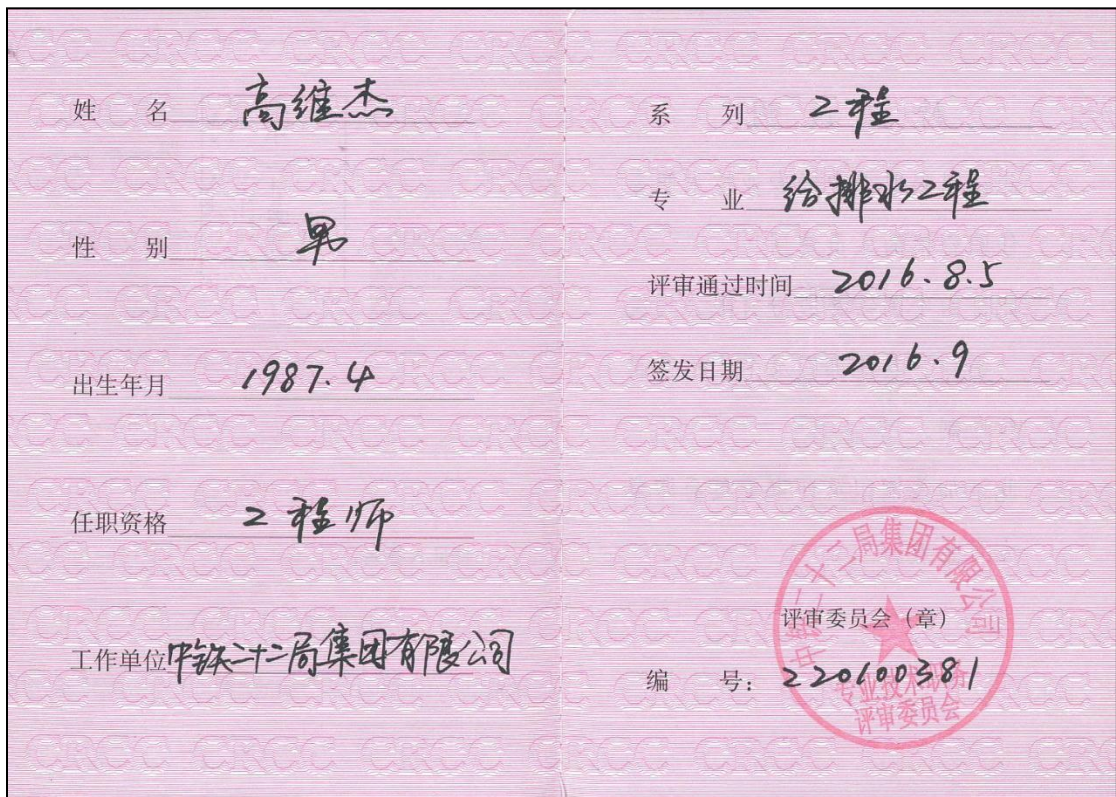 姓 名 高维杰
性 别 男
出生年月 1987.4
任职资格 工程师
工作单位 中铁二十二局集团有限公司
系 列 工程
专 业 给排水工程
评审通过时间 2016.8.5
签发日期 2016.9
评审委员会（章）
编 号：220100381
中铁二十二局集团有限公司
专业技术职务
评审委员会
CRCC